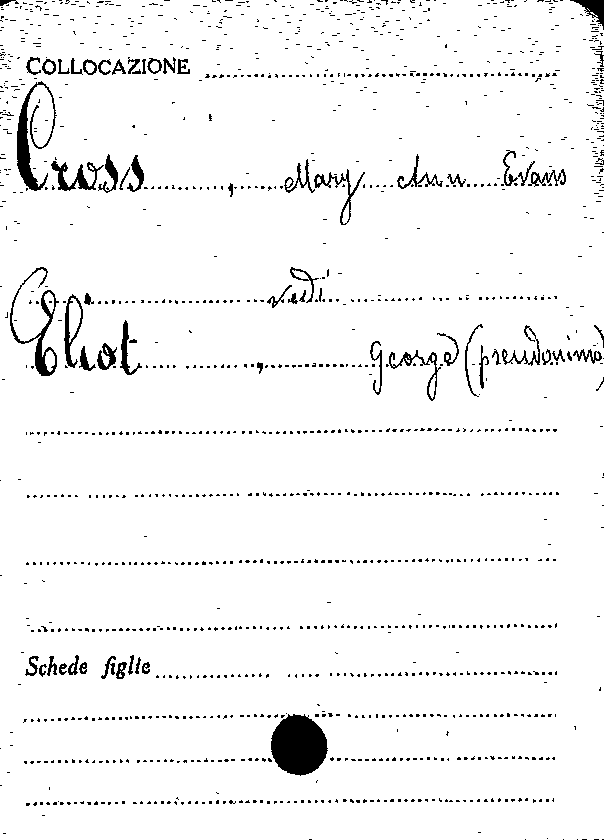 COLLOCAZIONE
Cross, Mary Ann Evans
vedi
Eliot, George (pseudonimo)
Schede figlie